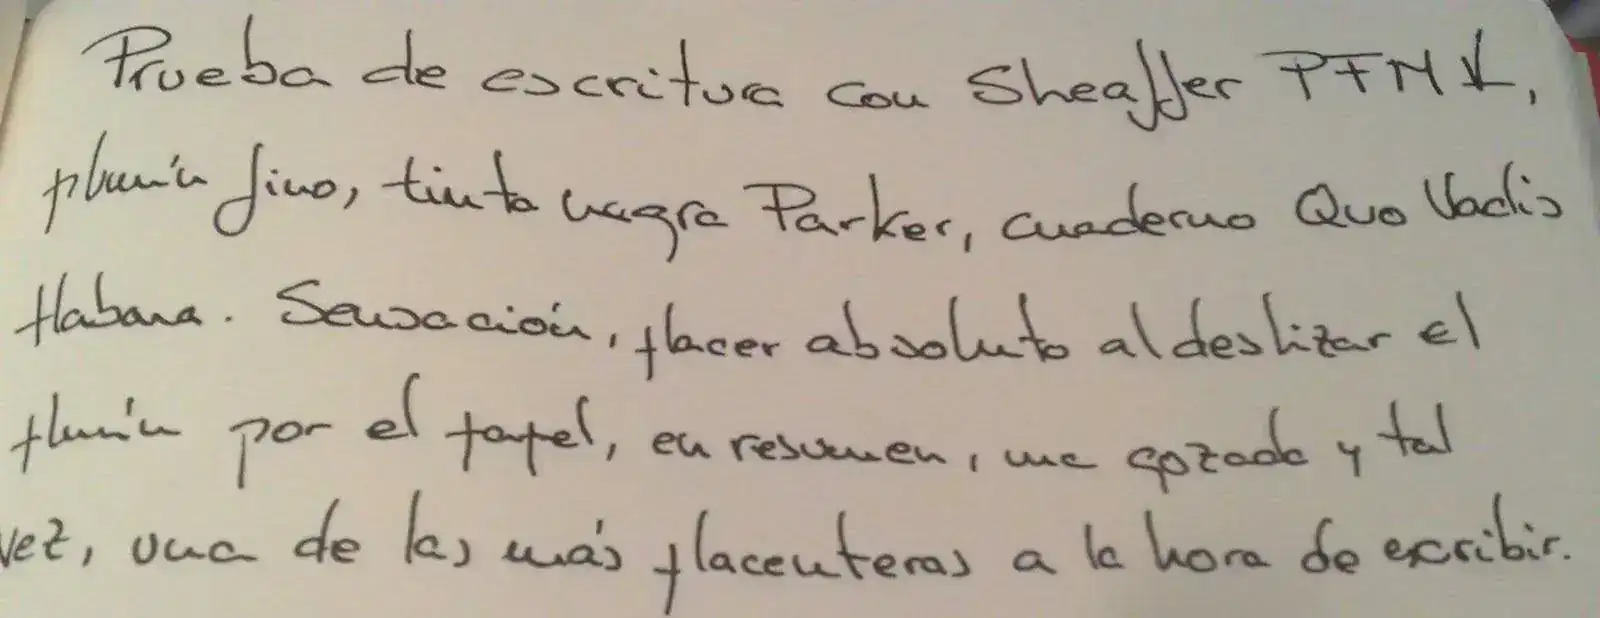 Prueba de escritura con Sheaffer PFM V,
plumín fino, tinta negra Parker, cuaderno Quo Vadis
Habana. Sensación, placer absoluto al deslizar el
plumín por el papel, en resumen, una gozada y tal
vez, una de las más placenteras a la hora de escribir.